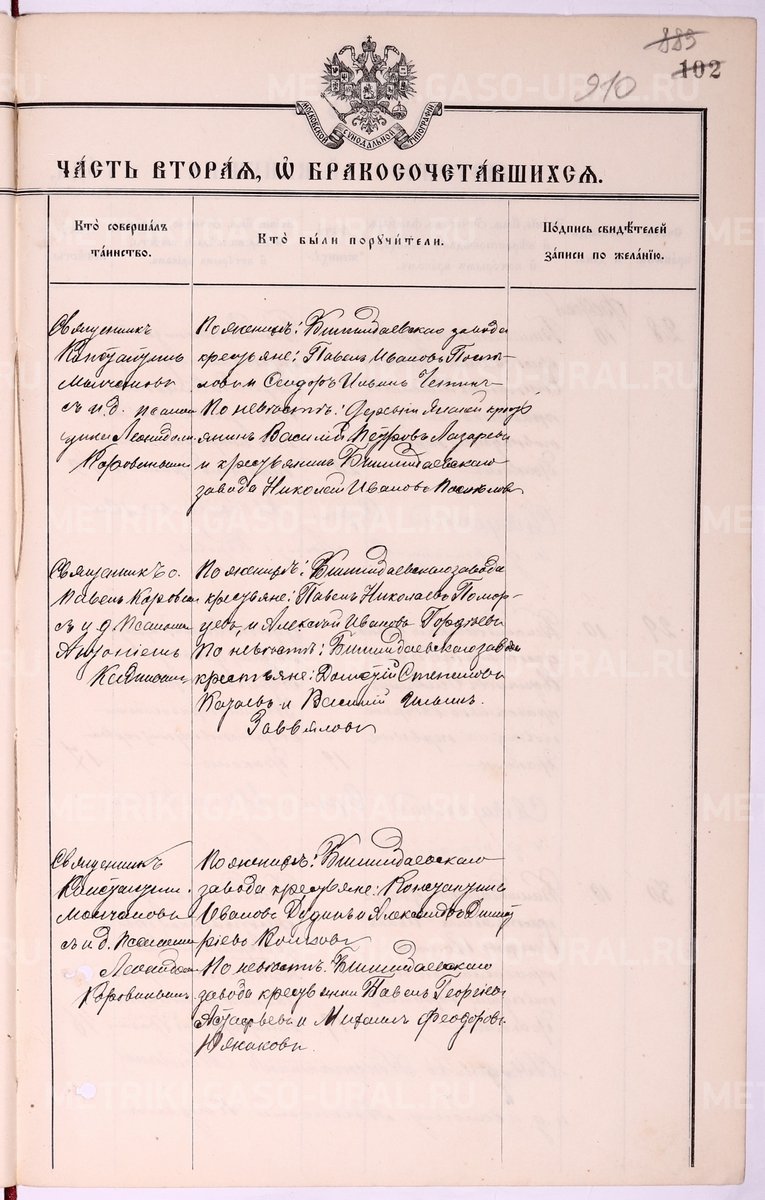 885
102
910
МОСКОВСКОЙ СѴНОДАЛЬНОЙ ТИПОГРАФІИ
ЧА́СТЬ ВТОРА́Ѧ, Ѡ҆ БРАКОСОЧЕТА́ВШИХСѦ.
Кто̀ соверша́лъ
та́инство.
Кто̀ бы́ли порꙋчи́тели.
По́дпись свидѣ́телей
за́писи по жела́нїю.
Священникъ
Константинъ
Молчановъ
съ и. д. псалом
щика Леонидом
Коровинымъ
По женихѣ: Билимбаевскаго завода
крестьяне: Павелъ Ивановъ
и Сидоръ Ильинъ
По невѣстѣ: деревни крестьянинъ Василій Петровъ Лазаревъ
и крестьянинъ Билимбаевскаго
завода Николай Ивановъ
Священникъ о.
Павелъ Коровин
съ и д. псаломщ
Антоніемъ
По женихѣ: Билимбаевскаго завода
крестьяне: Павелъ Николаевъ Помор-
цевъ, и Алексѣй Ивановъ Гордѣевъ
По невѣстѣ: Билимбаевскаго завода
крестьяне: Дмитрій Степановъ
и Василій Ильинъ
Завьяловъ
Священникъ
Константинъ
Молчановъ
съ и д. псаломщи
Леонидом
Коровинымъ
По женихѣ: Билимбаевскаго
завода крестьяне: Константинъ
Ивановъ Дудинъ и Александръ Димит
ріевъ
По невѣстѣ: Билимбаевскаго
завода крестьяне Павелъ Георгіевъ
Астафьевъ и Михаилъ Феодоровъ
Юнаковъ
METRIKI.GASO-URAL.RU